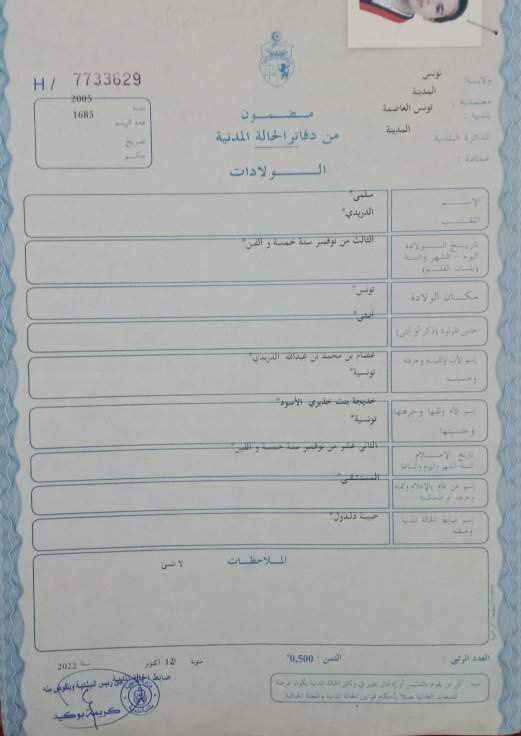 ولاية: تونس
معتمدية: المدينة
بلدية: تونس العاصمة
الدائرة البلدية المدينة
عمادة:
H/ 7733629
سنة 2005
عدد الرسم 1685
تصريح
حكم
مضمون
من دفاتر الحالة المدنية
الولادات
الإسم سلمى*
اللقب الدريدي*
تاريخ الولادة الثالث من نوفمبر سنة خمسة و ألفين*
اليوم - الشهر والسنة
(بلسان القلم)
مكان الولادة تونس*
جنس المولود (ذكر أو أنثى) أنثى*
إسم الأب ولقبه وحرفته عصام بن محمد بن عبدالله الدريدي*
وجنسيته تونسية*
إسم الأم ولقبها وحرفتها خديجة بنت خذيري الأسود*
وجنسيتها تونسية*
تاريخ الإعلام الثاني عشر من نوفمبر سنة خمسة و ألفين*
السنة الشهر واليوم والساعة
إسم من قام بالإعلام ولقبه المستشفى*
وحرفته أو المحكمة
إسم ضابط الحالة المدنية حبيبة دلدول*
وصفته
الملاحظات
لا شئ
العدد الرتبي :
الثمن : 0,500*
12 أكتوبر سنة 2022
ضابط الحالة المدنية
عن رئيس البلدية وبتفويض منه
كريمة بوكيد
تنبيه : كل من يقوم بالتدليس أو إدخال تغيير في وثائق الحالة المدنية يكون عرضة
للتتبعات العدلية عملا بأحكام قوانين الحالة المدنية والمجلة الجنائية